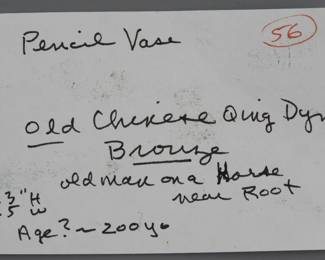 Pencil Vase
56
old Chinese Qing Dyn
Bronze
old man on a Horse
near Root
3" H
5 W
Age? ~ 200 yo